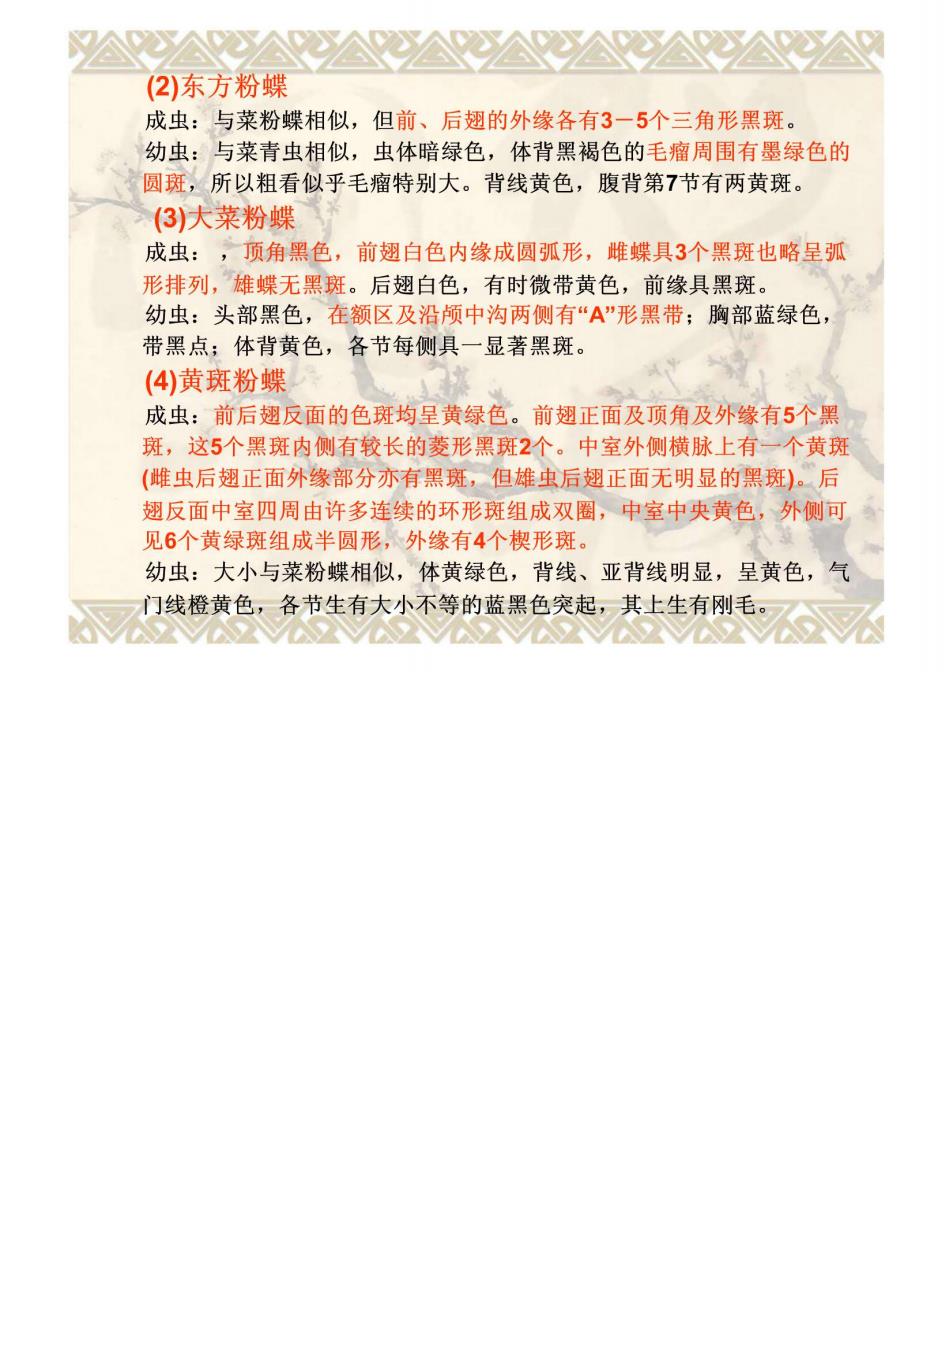 (2)东方粉蝶
成虫：与菜粉蝶相似，但前、后翅的外缘各有3－5个三角形黑斑。
幼虫：与菜青虫相似，虫体暗绿色，体背黑褐色的毛瘤周围有墨绿色的
圆斑，所以粗看似乎毛瘤特别大。背线黄色，腹背第7节有两黄斑。
(3)大菜粉蝶
成虫：，顶角黑色，前翅白色内缘成圆弧形，雌蝶具3个黑斑也略呈弧
形排列，雄蝶无黑斑。后翅白色，有时微带黄色，前缘具黑斑。
幼虫：头部黑色，在额区及沿颅中沟两侧有“A”形黑带；胸部蓝绿色，
带黑点；体背黄色，各节每侧具一显著黑斑。
(4)黄斑粉蝶
成虫：前后翅反面的色斑均呈黄绿色。前翅正面及顶角及外缘有5个黑
斑，这5个黑斑内侧有较长的菱形黑斑2个。中室外侧横脉上有一个黄斑
(雌虫后翅正面外缘部分亦有黑斑，但雄虫后翅正面无明显的黑斑)。后
翅反面中室四周由许多连续的环形斑组成双圈，中室中央黄色，外侧可
见6个黄绿斑组成半圆形，外缘有4个楔形斑。
幼虫：大小与菜粉蝶相似，体黄绿色，背线、亚背线明显，呈黄色，气
门线橙黄色，各节生有大小不等的蓝黑色突起，其上生有刚毛。